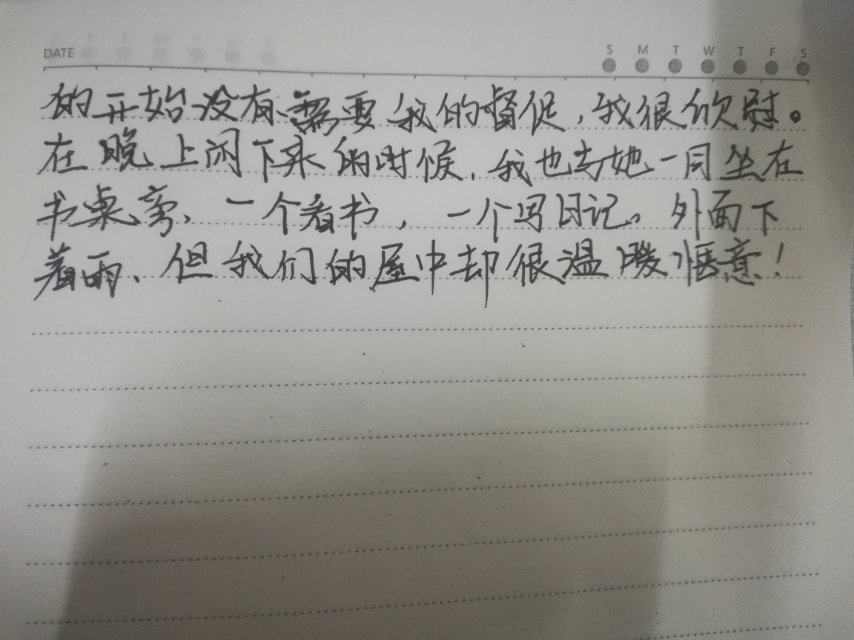 DATE
S M T W T F S
的开始没有需要我的督促，我很欣慰。
在晚上闲下来的时候，我也与她一同坐在
书桌旁、一个看书，一个写日记。外面下
着雨、但我们的屋中却很温暖惬意！